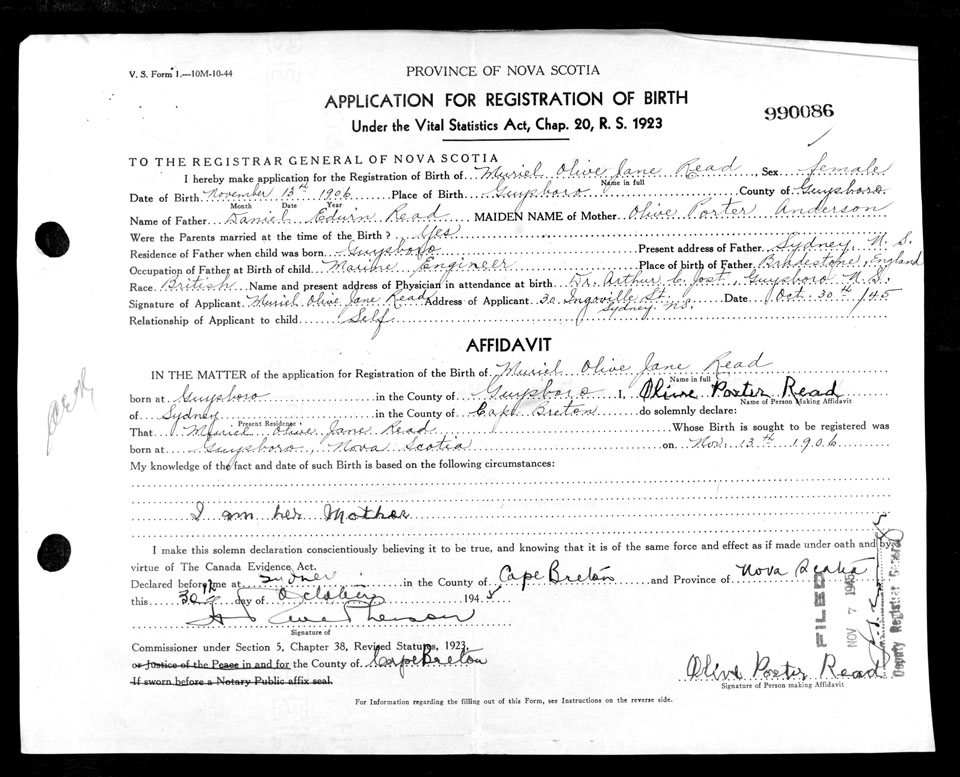 V. S. Form 1.—10M-10-44
PROVINCE OF NOVA SCOTIA
APPLICATION FOR REGISTRATION OF BIRTH
990086
Under the Vital Statistics Act, Chap. 20, R. S. 1923
TO THE REGISTRAR GENERAL OF NOVA SCOTIA
I hereby make application for the Registration of Birth of Muriel Olive Jane Read, Sex female
Name in full
Date of Birth November 13th 1906 Place of Birth Guysboro County of Guysboro
Month Date Year
Name of Father Daniel Edwin Read MAIDEN NAME of Mother Olive Porter Anderson
Were the Parents married at the time of the Birth? Yes
Residence of Father when child was born Guysboro Present address of Father Sydney, N. S.
Occupation of Father at Birth of child Marine Engineer Place of birth of Father England
Race British Name and present address of Physician in attendance at birth Dr. Arthur C. Jost, Guysboro N. S.
Signature of Applicant Muriel Olive Jane Read Address of Applicant 30 St. Date Oct. 30th /45
Sydney N.S.
Relationship of Applicant to child Self
AFFIDAVIT
IN THE MATTER of the application for Registration of the Birth of Muriel Olive Jane Read
Name in full
born at Guysboro in the County of Guysboro I, Olive Porter Read
Name of Person Making Affidavit
of Sydney in the County of Cape Breton do solemnly declare:
Present Residence
That Muriel Olive Jane Read Whose Birth is sought to be registered was
born at Guysboro, Nova Scotia on Nov. 13th 1906
My knowledge of the fact and date of such Birth is based on the following circumstances:
I am her Mother
I make this solemn declaration conscientiously believing it to be true, and knowing that it is of the same force and effect as if made under oath and by
virtue of The Canada Evidence Act.
Declared before me at Sydney in the County of Cape Breton and Province of Nova Scotia
this 30th day of October 1945
Signature of
Commissioner under Section 5, Chapter 38, Revised Statutes, 1923,
or Justice of the Peace in and for the County of Cape Breton
If sworn before a Notary Public affix seal.
Olive Porter Read
Signature of Person making Affidavit
FILED
NOV 7 1945
Deputy Registrar General
For Information regarding the filling out of this Form, see Instructions on the reverse side.